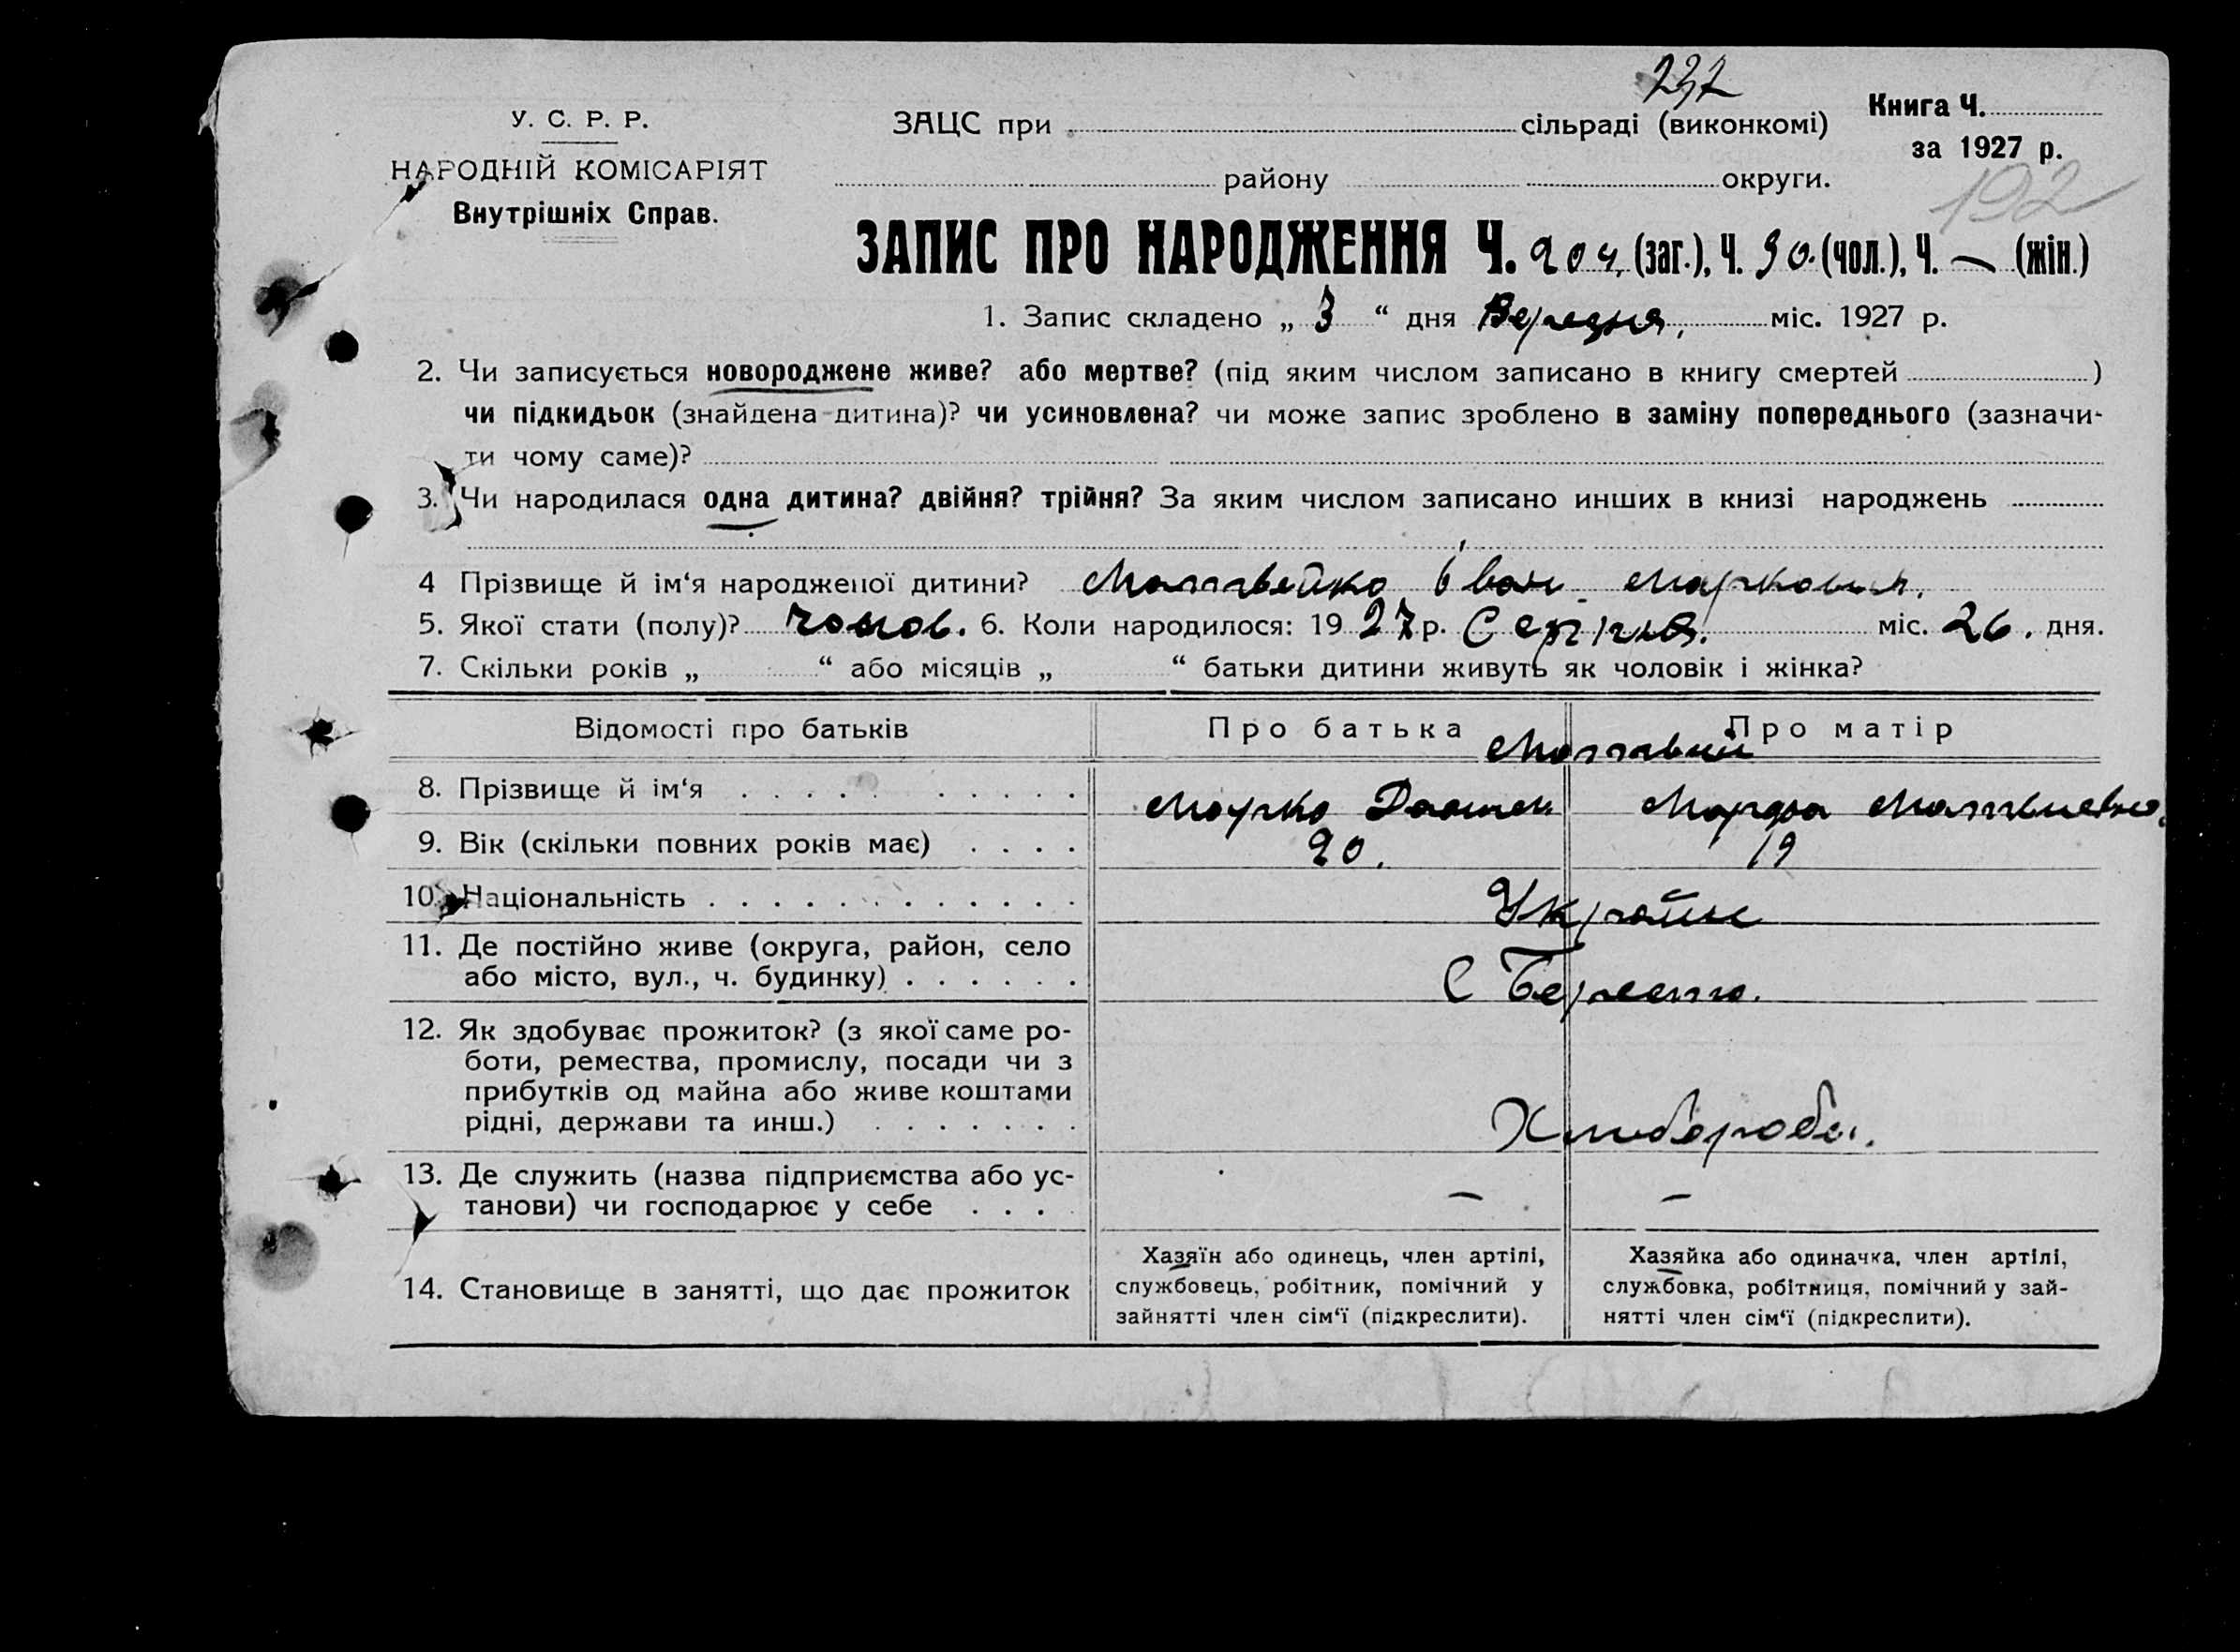 237
У. С. Р. Р.
НАРОДНІЙ КОМІСАРІЯТ
Внутрішніх Справ.
ЗАЦС при сільраді (виконкомі)
району округи.
Книга Ч.
за 1927 р.
192
ЗАПИС ПРО НАРОДЖЕННЯ Ч. 204. (заг.), Ч. 90. (чол.), Ч. — (жін.)
1. Запис складено „ 3 “ дня Вересня, міс. 1927 р.
2. Чи записується новороджене живе? або мертве? (під яким числом записано в книгу смертей )
чи підкидьок (знайдена дитина)? чи усиновлена? чи може запис зроблено в заміну попереднього (зазначи-
ти чому саме)?
3. Чи народилася одна дитина? двійня? трійня? За яким числом записано инших в книзі народжень
4 Прізвище й ім‘я народженої дитини? Матвейко Іван Маркович.
5. Якої стати (полу)? чолов. 6. Коли народилося: 19 27 р. Серпня. міс. 26. дня.
7. Скільки років „ “ або місяців „ “ батьки дитини живуть як чоловік і жінка?
Відомості про батьків Про батька Про матір
8. Прізвище й ім‘я Марко Марфа
9. Вік (скільки повних років має) 20. 19
10. Національність Україн
11. Де постійно живе (округа, район, село
або місто, вул., ч. будинку) С
12. Як здобуває прожиток? (з якої саме ро-
боти, ремества, промислу, посади чи з
прибутків од майна або живе коштами
рідні, держави та инш.)
13. Де служить (назва підприємства або ус-
танови) чи господарює у себе — —
14. Становище в занятті, що дає прожиток
Хазяїн або одинець, член артілі,
службовець, робітник, помічний у
зайнятті член сім‘ї (підкреслити).
Хазяйка або одиначка, член артілі,
службовка, робітниця, помічний у зай-
нятті член сім‘ї (підкреслити).